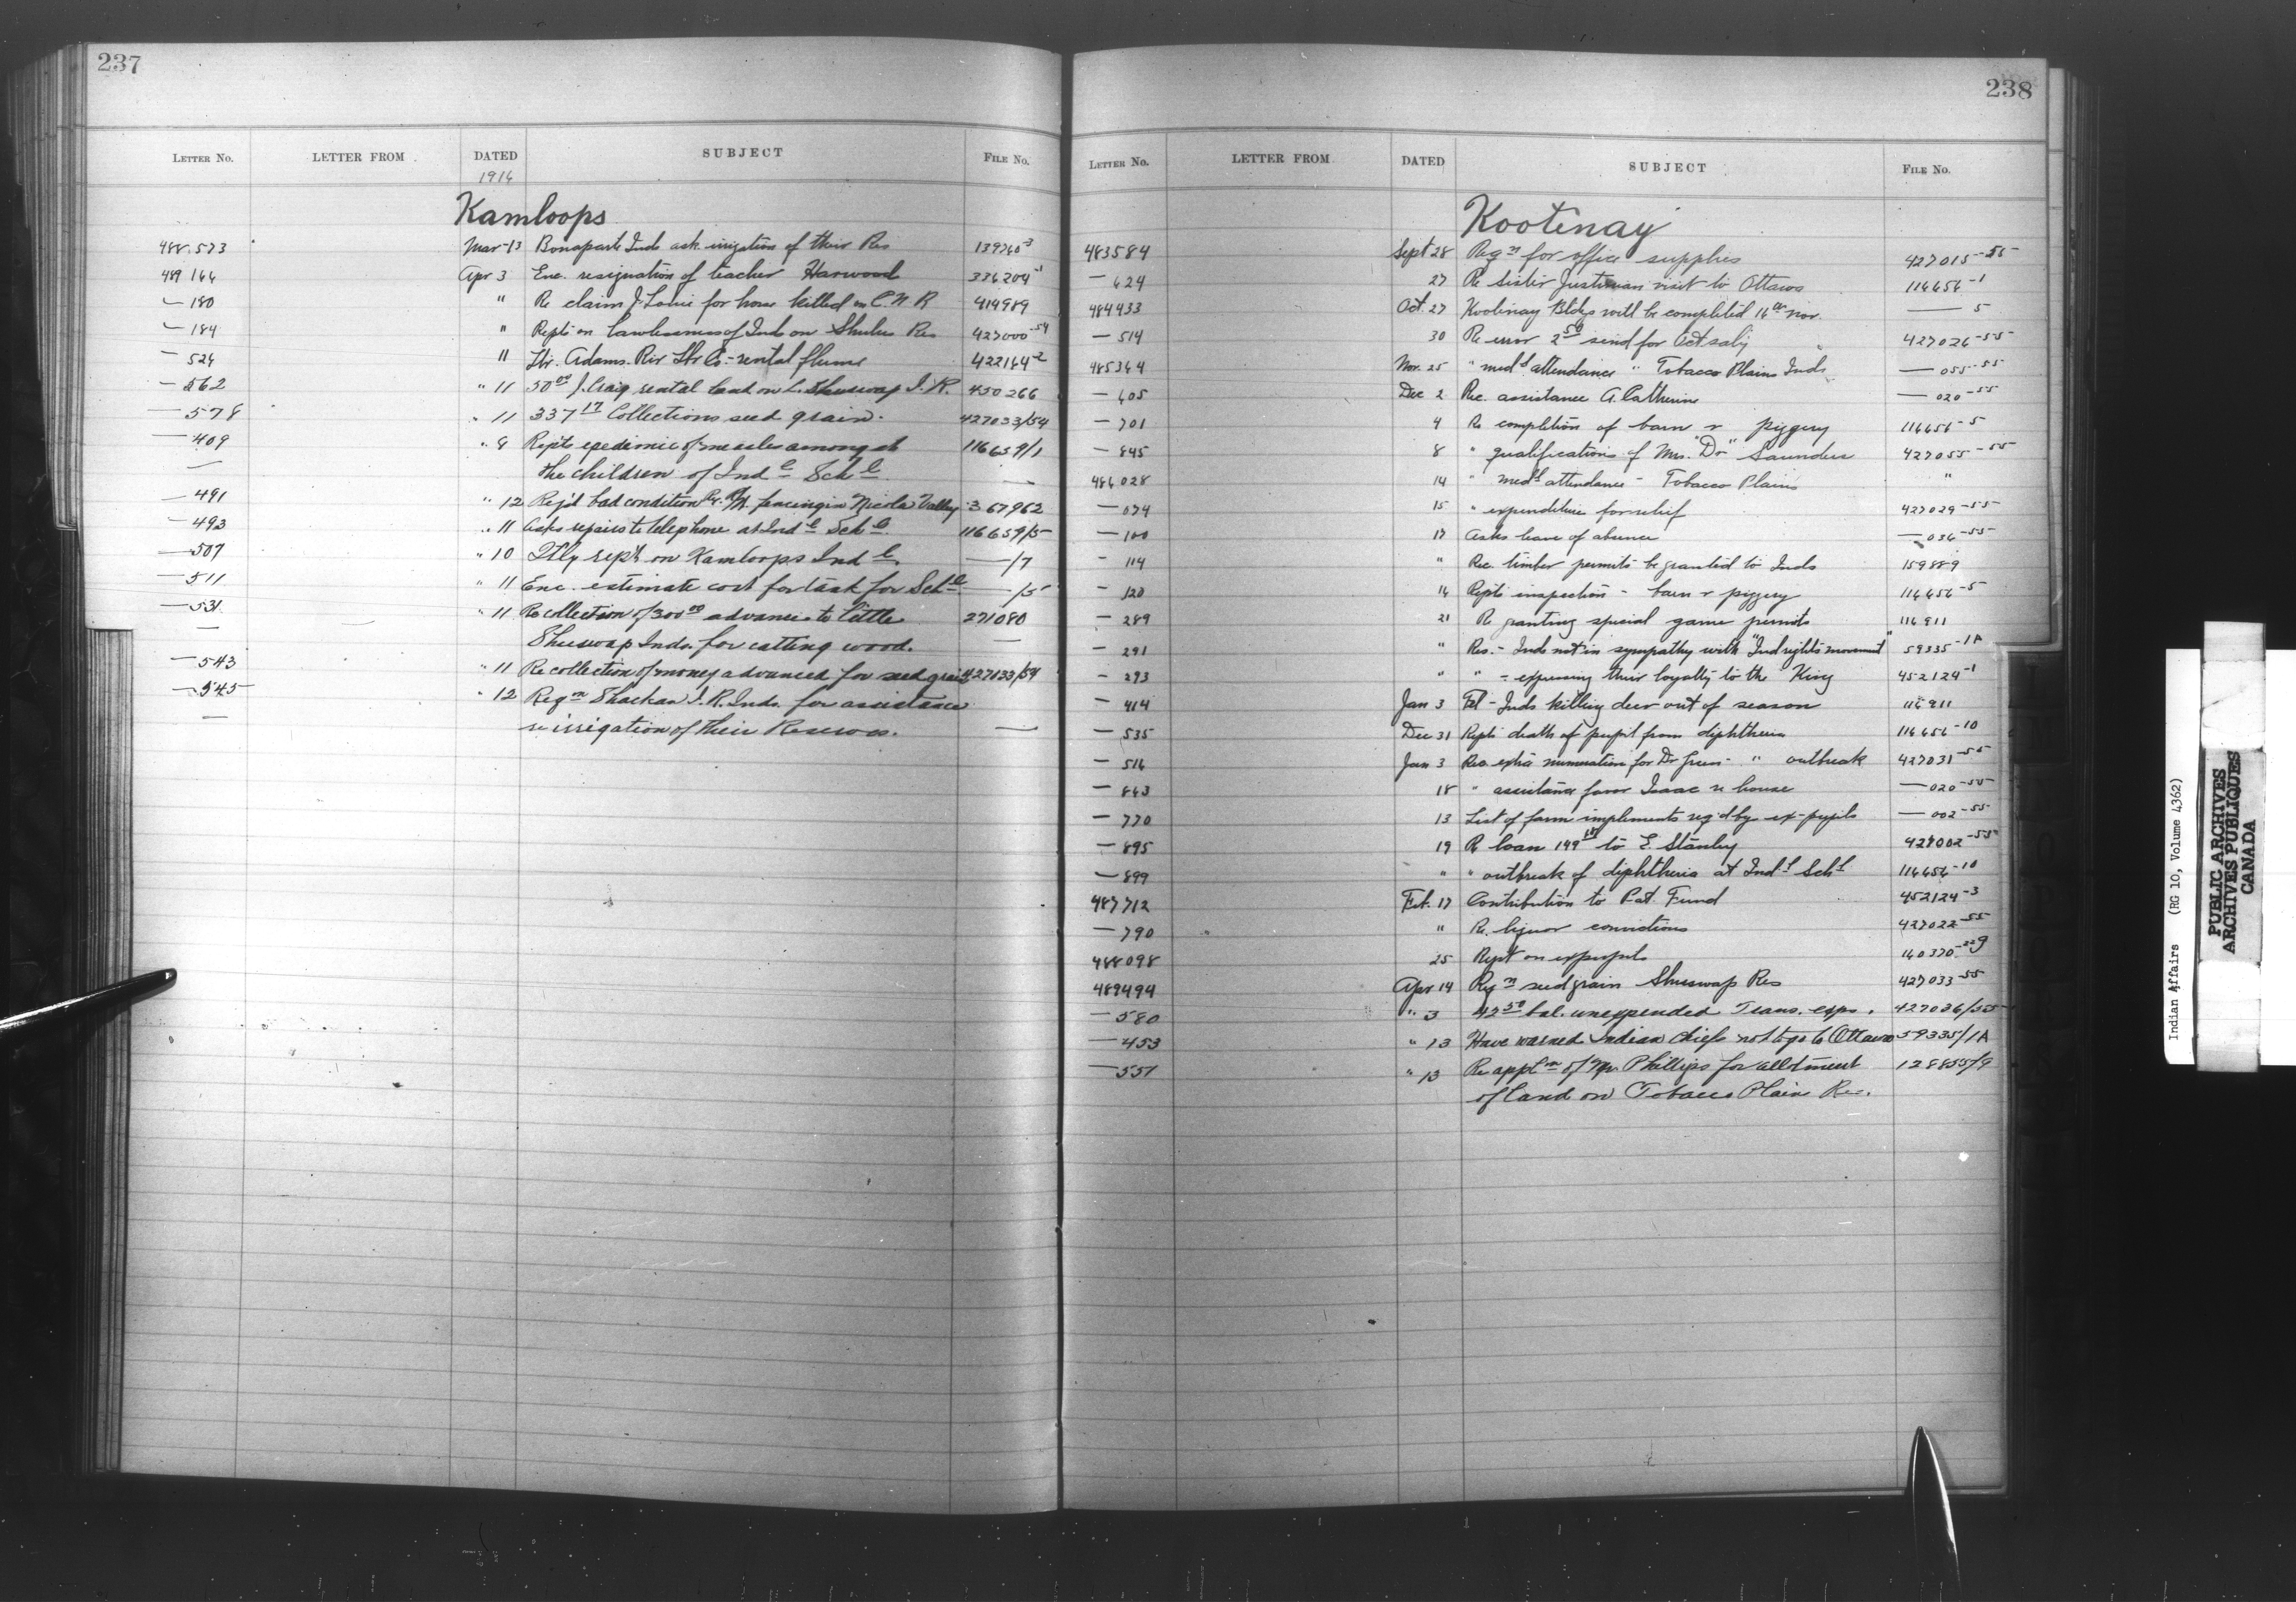 237
LETTER No. LETTER FROM DATED SUBJECT FILE No.
1916
Kamloops
488,573 Mar 13 Bonaparte Inds ask irrigation of their Res 139760-3
489 166 Apr 3 Enc. resignation of teacher Harwood 336204-1
— 180 " Re claim J. Louie for horse killed on C.N.R 414989
— 184 " Repts on lawlessness of Inds on Shulus Res 427000-54
— 526 " 11 Adams Riv Lbr Co - rental flume 422164-2
— 562 " 11 50 00 J. Craig rental land on L. Shuswap I.R. 450266
— 578 " 11 337 17 Collections seed grain. 427033/54
— 409 " 8 Repts epedimic of measles amongst 116659/1
— the children of Ind l Sch l —
— 491 " 12 Rep'd bad condition Ry. fencing in Nicola Valley 367962
— 493 " 11 Asks repairs to telephone at Ind l Sch l 116659/5
— 507 " 10 Qtly rept on Kamloops Ind l. —/7
— 511 " 11 Enc. estimate cost for task for Sch l —/5
— 531 " 11 Re collection of 300 00 advance to Little 271080
— Shuswap Inds. for cutting wood. —
— 543 " 11 Re collection of money advanced for seed grain 427033/54
— 545 " 12 Reqn Shackan I.R. Inds. for assistance
— re irrigation of their Reserves. —
238
LETTER No. LETTER FROM DATED SUBJECT FILE No.
Kootenay
483584 Sept 28 Reqn for office supplies 427015-55
— 624 27 Re Sister Justinian visit to Ottawa 116656-1
484433 Oct. 27 Kootenay Bldgs will be completed 16th Nov. — 5
— 514 30 Re error 2 50 send for 427026-55
485364 Nov. 25 " medl attendance " Tobacco Plains Inds — 055-55
— 605 Dec 2 Rec. assistance A. Catherine — 020-55
— 701 4 Re completion of barn & piggery 116656-5
— 845 8 " qualifications of Mrs. "Dr" Saunders 427055-55
486028 14 " medl attendance - Tobacco Plains "
— 074 15 " expenditure for relief 427029-55
— 100 17 Asks leave of absence — 036-55
— 114 " Rec. timber permits be granted to Inds 159889
— 120 16 Repts inspection - barn & piggery 116656-5
— 289 21 Re granting special game permits 116911
— 291 " Res. - Inds not in sympathy with "Ind rights movement" 59335-1A
— 293 " " - expressing their loyalty to the King 452124-1
— 414 Jan 3 Tel - Inds killing deer out of season 116911
— 535 Dec 31 Repts death of pupil from diphtheria 116656-10
— 516 Jan 3 Rec extra numeration for Dr Green - " outbreak 427031-55
— 663 18 " assistance favor Isaac re house — 020-55
— 770 13 List of farm implements req'd by ex-pupils — 002-55
— 895 19 Re loan 149 to E. Stanley 427002-55
— 899 " " outbreak of diphtheria at Indl Schl 116656-10
487712 Feb. 17 Contribution to Pat. Fund 452124-3
— 790 " Re. liquor convictions 427022-55
488098 25 Rept on expupils 160370-22 9
489494 Apr 14 Reqn seed grain Shuswap Res 427033-55
— 580 " 3 42 50 bal. unexpended Trans. exps. 427036/55
— 453 " 13 Have warned Indian chiefs not to go to Ottawa 59335/1A
— 551 " 13 Re appln of Mr. Phillips for allotment 128855/9
of land on Tobacco Plain Res.
Indian Affairs (RG 10, Volume 4362)
PUBLIC ARCHIVES
ARCHIVES PUBLIQUES
CANADA